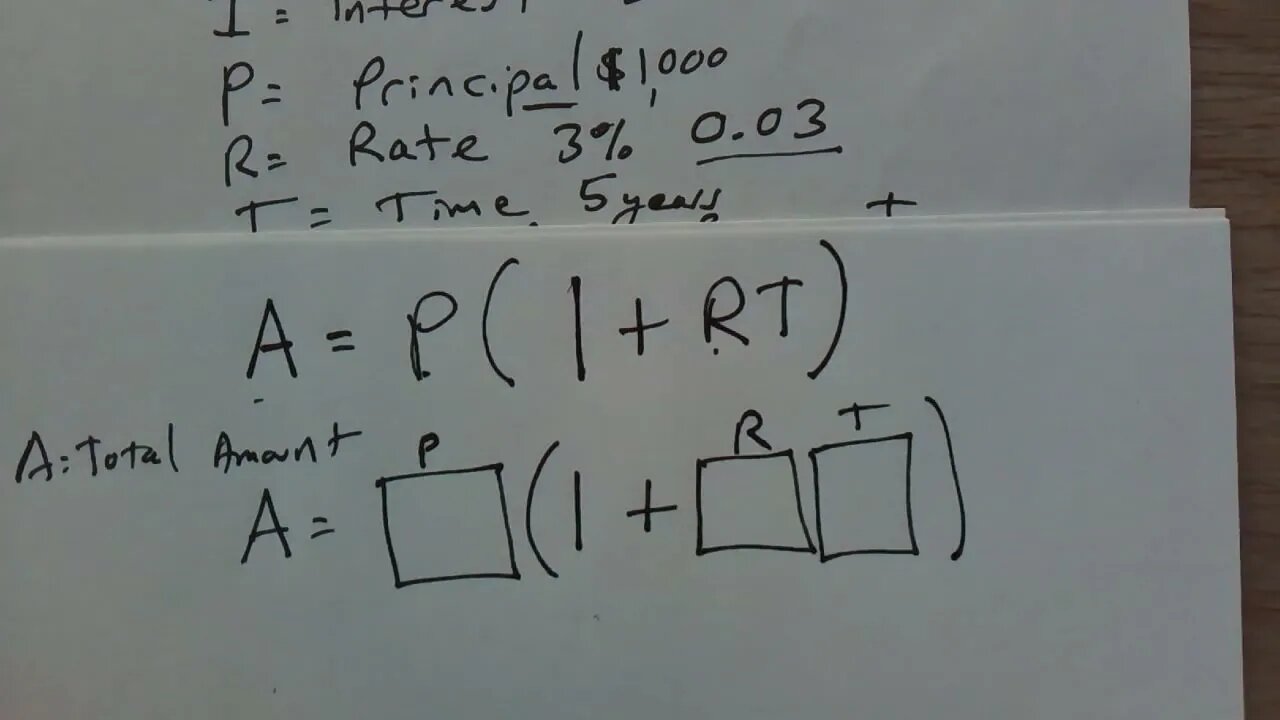 I = Interest
P = Principal $1,000
R = Rate 3% 0.03
T = Time 5 years +
A = P(1 + RT)
A: Total Amount
P R T
A = □(1 + □□)